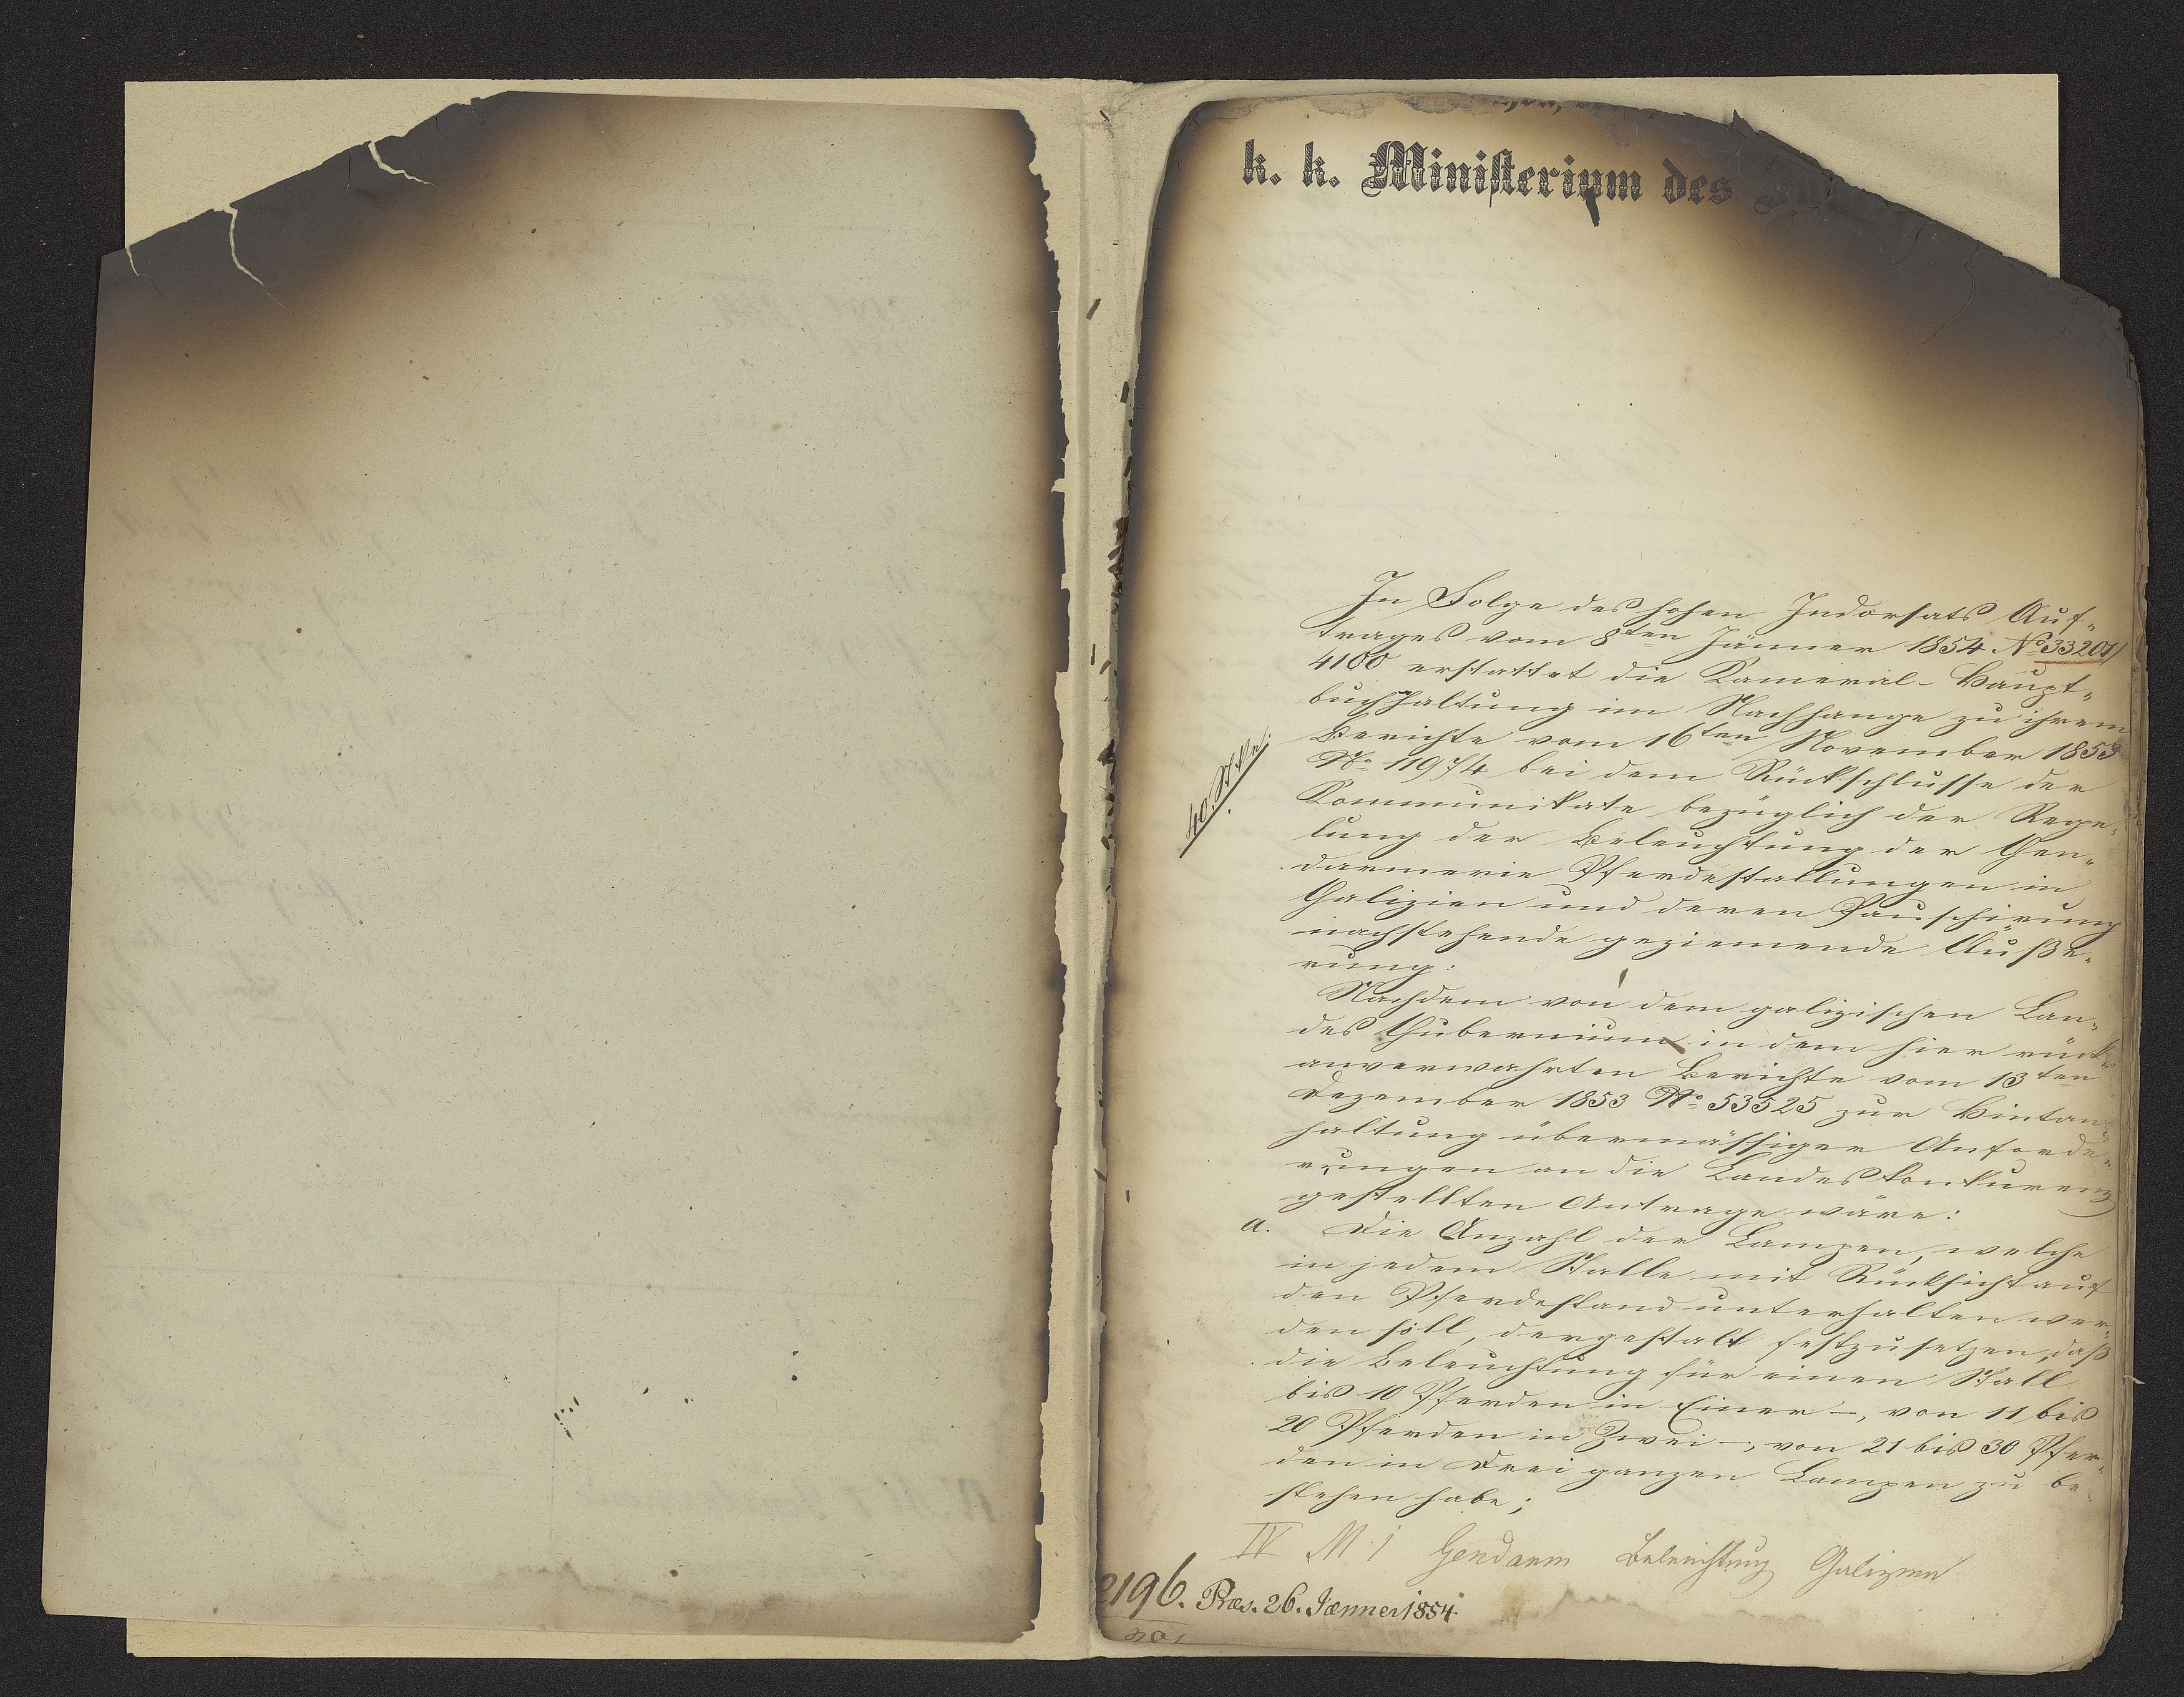 k. k. Ministerium des
In Folge des hohen Indorsats Auf-
trages vom 8ten Jänner 1854 No 33201/
4100 erstattet die Kameral-Haupt-
buchhaltung im Nachhange zu ihrem
Berichte vom 16ten November 1853
No 11974 bei dem Rückschlusse der
40. Stke.
Kommunikate bezüglich der Rege-
lung der Beleuchtung der Gen-
darmerie Pferdestallungen in
Galizien und deren Pauschirung
nachstehende geziemende Äuße-
rung:
Nachdem von dem galizischen Lan-
des Gubernium in dem hier rück-
anverwahrten Berichte vom 13ten
Dezember 1853 No 53525 zur Hintan-
haltung übermässiger Anforde-
rungen an die Landeskonkurenz
gestellten Antrage wäre:
a. Die Anzahl der Lampen, welche
in jedem Stalle mit Rücksicht auf
den Pferdestand unterhalten wer-
den soll, dergestalt festzusetzen, daß
die Beleuchtung für einen Stall
bis 10 Pferden in Einer –, von 11 bis
20 Pferden in Zwei –, von 21 bis 30 Pfer-
den in Drei ganzen Lampen zu be-
stehen habe;
IV M 1 Gendarm Beleuchtung Galizien
2196. Præs. 26. Jænner 1854.